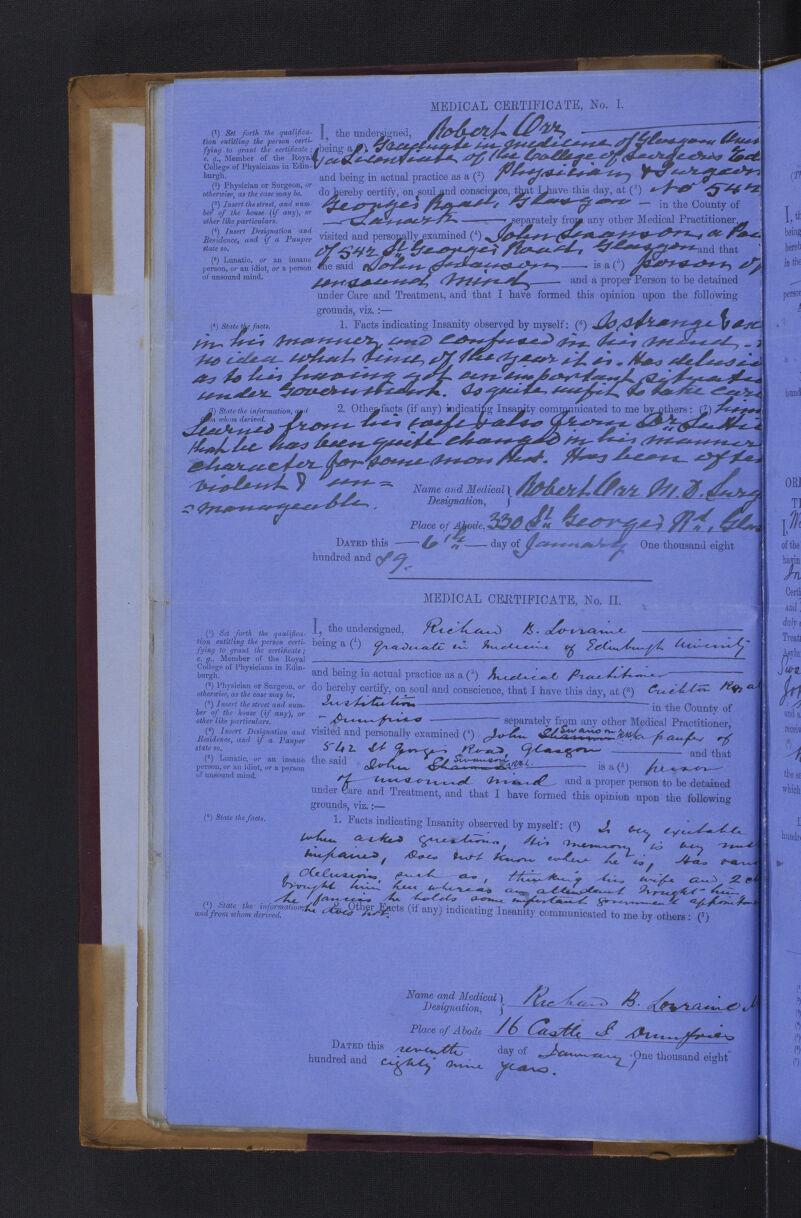 MEDICAL CERTIFICATE, No. I.
(1) Set forth the qualifica-
tion entitling the person certi-
fying to grant the certificate;
e. g., Member of the Royal
College of Physicians in Edin-
burgh.
(2) Physician or Surgeon, or
otherwise, as the case may be.
(3) Insert the street, and num-
ber of the house (if any), or
other like particulars.
(4) Insert Designation and
Residence, and if a Pauper
state so.
(5) Lunatic, or an insane
person, or an idiot, or a person
of unsound mind.
I, the undersigned, Robert Orr
being a (1) Graduate in medicine of Glasgow Univ
& a Licentiate of the College of Surgeons Ed
and being in actual practice as a (2) Physician & Surgeon
do hereby certify, on soul and conscience, that I have this day, at (3) No 542
George's Road, Glasgow — in the County of
Lanark — separately from any other Medical Practitioner,
visited and personally examined (4) John Swanson, a Pau
of 542 St George's Road, Glasgow and that
the said John Swanson — is a (5) person of
unsound mind — and a proper Person to be detained
under Care and Treatment, and that I have formed this opinion upon the following
grounds, viz. :—
(6) State the facts.
1. Facts indicating Insanity observed by myself: (6) Is strange & an
in his manner, and confused in his mind.
no idea what time of the year it is. Has delusio
as to his having got an important situatio
under Government. Is quite unfit to take care
(7) State the information, and
from whom derived.
2. Other facts (if any) indicating Insanity communicated to me by others: (7) him
Learned from his wife & also from Dr
that he has been quite changed in his manner
character for some months. Has been often
violent & un=
=manageable.
Name and Medical Designation, } Robert Orr M.D. Surg
Place of Abode, 330 St George's Rd, Glas
DATED this — 6th — day of January One thousand eight
hundred and 89.
MEDICAL CERTIFICATE, No. II.
(1) Set forth the qualifica-
tion entitling the person certi-
fying to grant the certificate;
e. g., Member of the Royal
College of Physicians in Edin-
burgh.
(2) Physician or Surgeon, or
otherwise, as the case may be.
(3) Insert the street and num-
ber of the house (if any), or
other like particulars.
(4) Insert Designation and
Residence, and if a Pauper
state so.
(5) Lunatic, or an insane
person, or an idiot, or a person
of unsound mind.
I, the undersigned, Richard B. Lorraine
being a (1) graduate in medicine of Edinburgh University
and being in actual practice as a (2) Medical Practitioner
do hereby certify, on soul and conscience, that I have this day, at (3) Crichton Royal
Institution — in the County of
Dumfries — separately from any other Medical Practitioner,
visited and personally examined (4) John Swanson R.B.L. a pauper of
542 St Georges Road, Glasgow — and that
the said John Swanson R.B.L. — is a (5) person
of unsound mind and a proper person to be detained
under Care and Treatment, and that I have formed this opinion upon the following
grounds, viz. :—
(6) State the facts.
1. Facts indicating Insanity observed by myself: (6) Is very excitable
when asked questions, His memory is very mu
impaired, Does not know where he is, Has vari
delusions, such as, thinking his wife and 2 ch
brought him here whereas an attendant brought him
he fancies he holds some important government appointme
he does not.
(7) State the information,
and from whom derived.
2. Other Facts (if any) indicating Insanity communicated to me by others: (7)
Name and Medical Designation, } Richard B. Lorraine
Place of Abode 16 Castle St Dumfries
DATED this seventh day of January One thousand eight
hundred and eighty nine years.